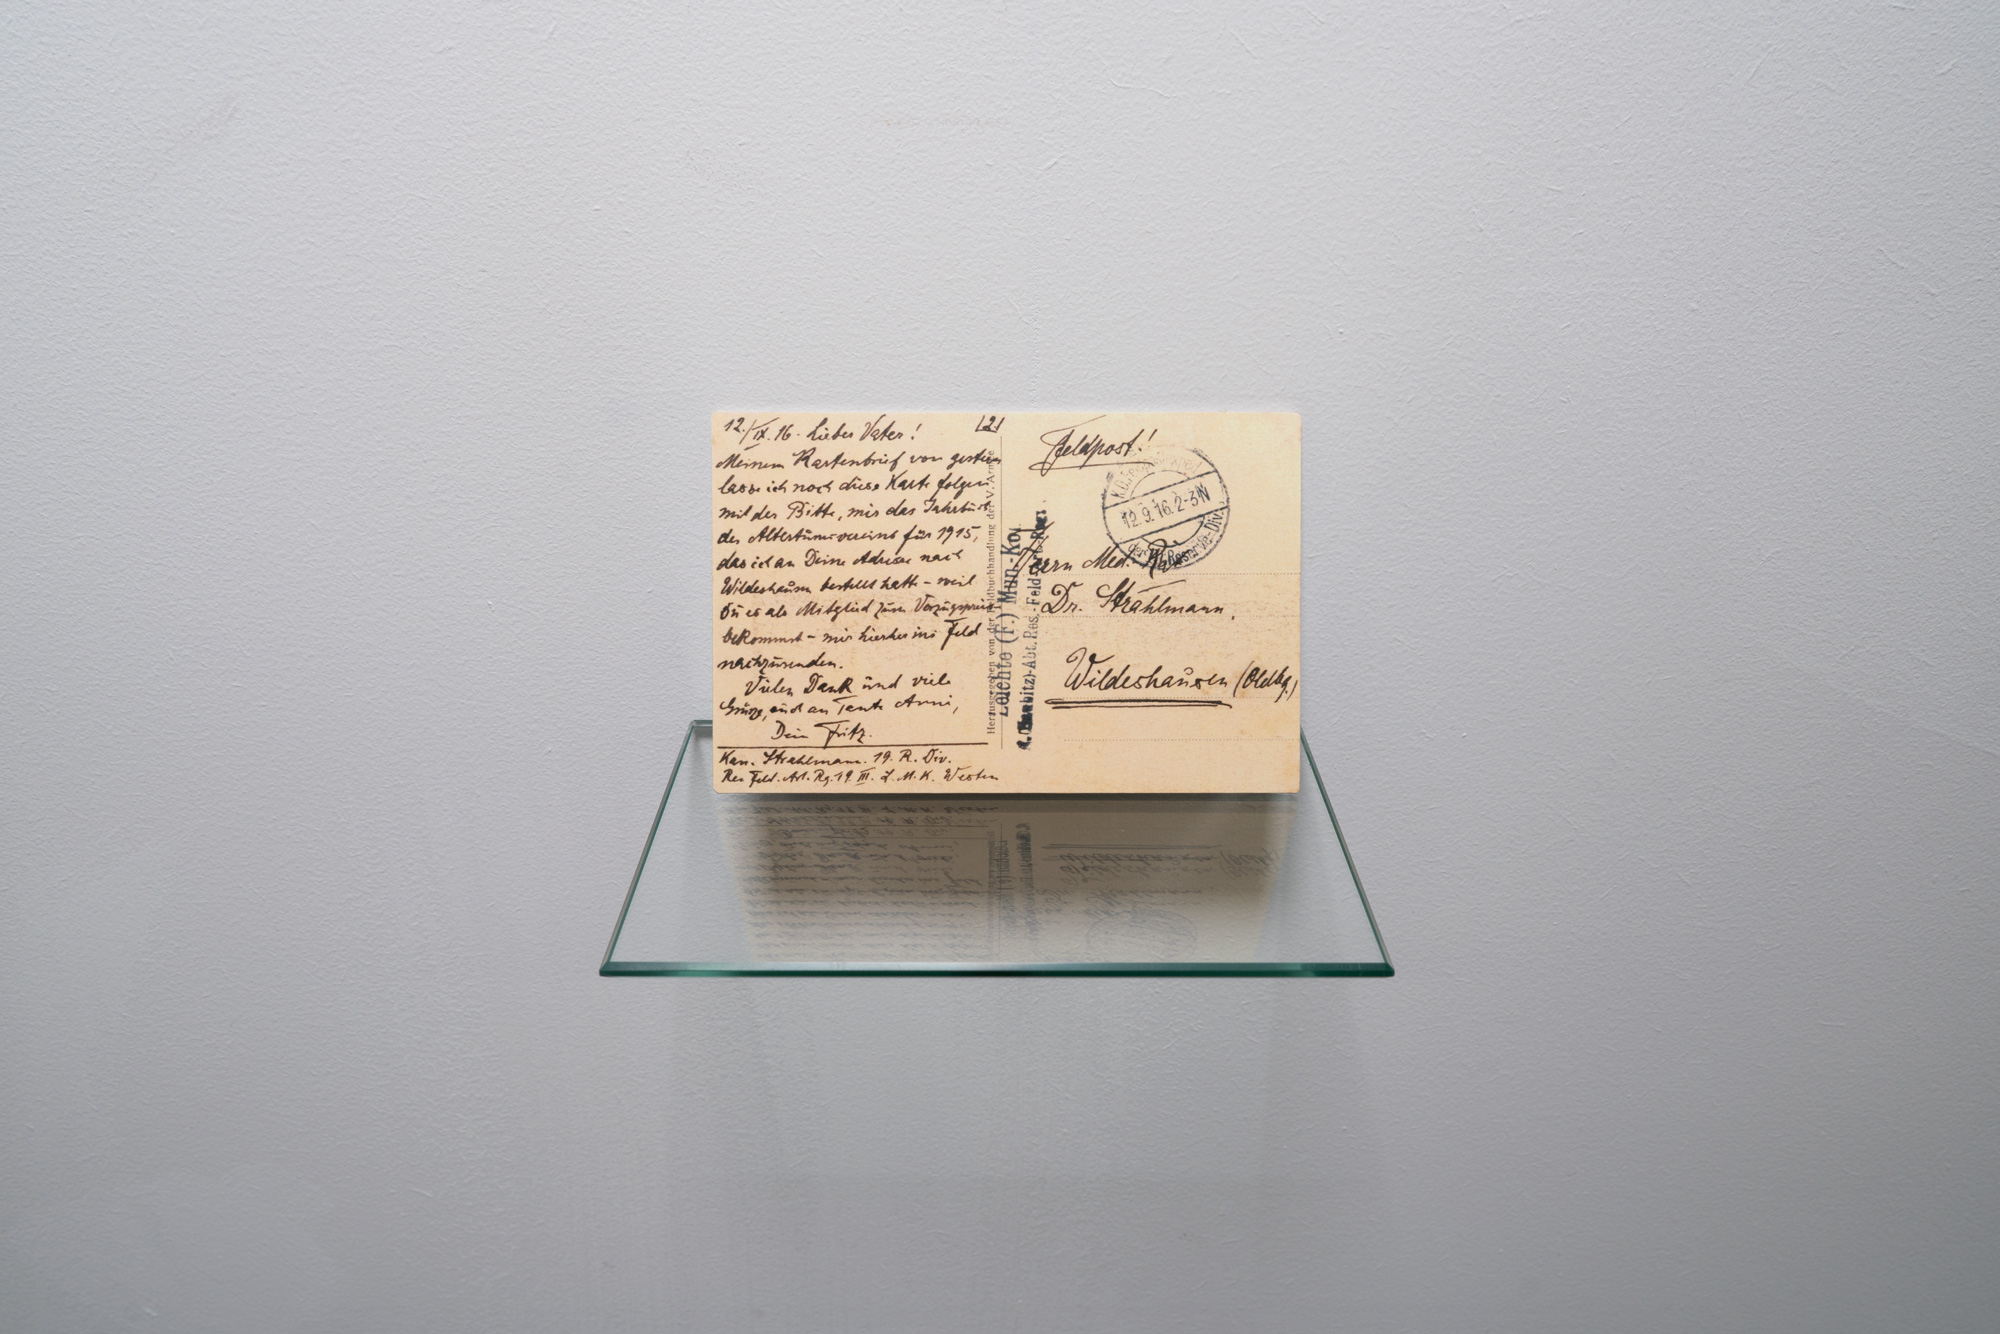 12./IX.16. Lieber Vater! 121
Meinem Kartenbrief von gestern
lasse ich noch diese Karte folgen
mit der Bitte, mir das Jahrbuch
des Altertumsvereins für 1915,
das ich an Deine Adresse nach
Wildeshausen bestellt hatte – weil
Du es als Mitglied zum Vorzugspreis
bekommst – mir hierher ins Feld
nachzusenden.
Vielen Dank und viele
Grüße, auch an Tante Anni,
Dein Fritz.
Kan. Strahlmann. 19. R. Div.
Res Feld. Art. Rg. 19 III. L. M. K. Westen
Herausgegeben von der Feldbuchhandlung der V. Armee
Leichte (F.) Mun.-Kol.
Abt. Res.-Feldart.-Regt.
Feldpost!
K.D. Feldpostexped.
12.9.16.2-3N
der Reserve-Div.
Herrn Med. Rat
Dr. Strahlmann,
Wildeshausen (Oldbg.)